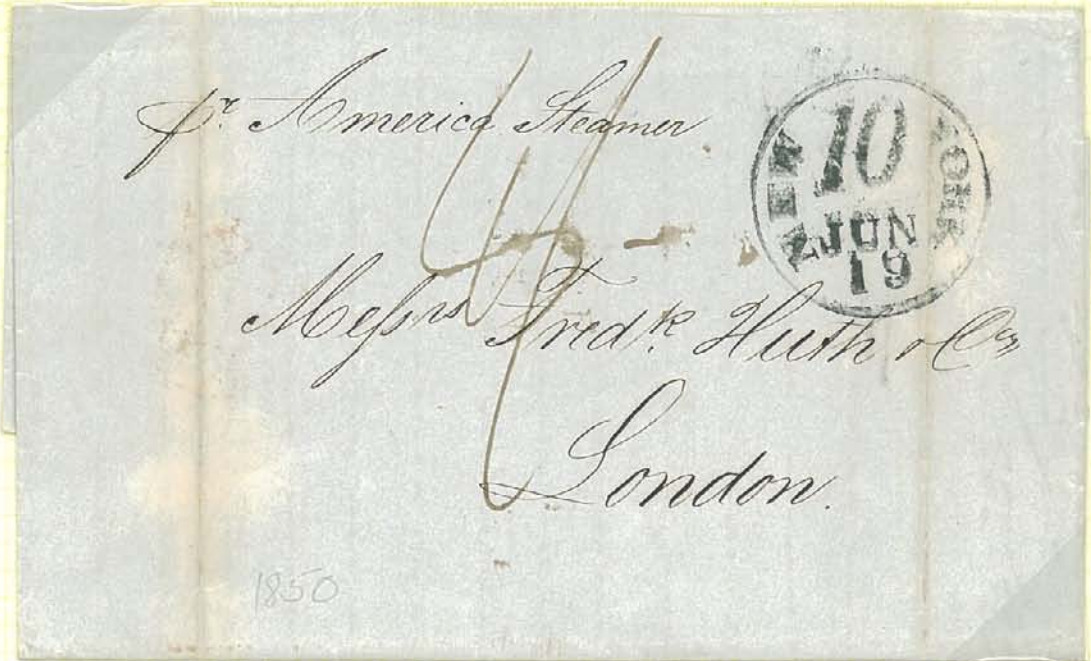 pr. America Steamer
NEW YORK
10
JUN
19
Messrs Fredk. Huth & Co
London.
1850